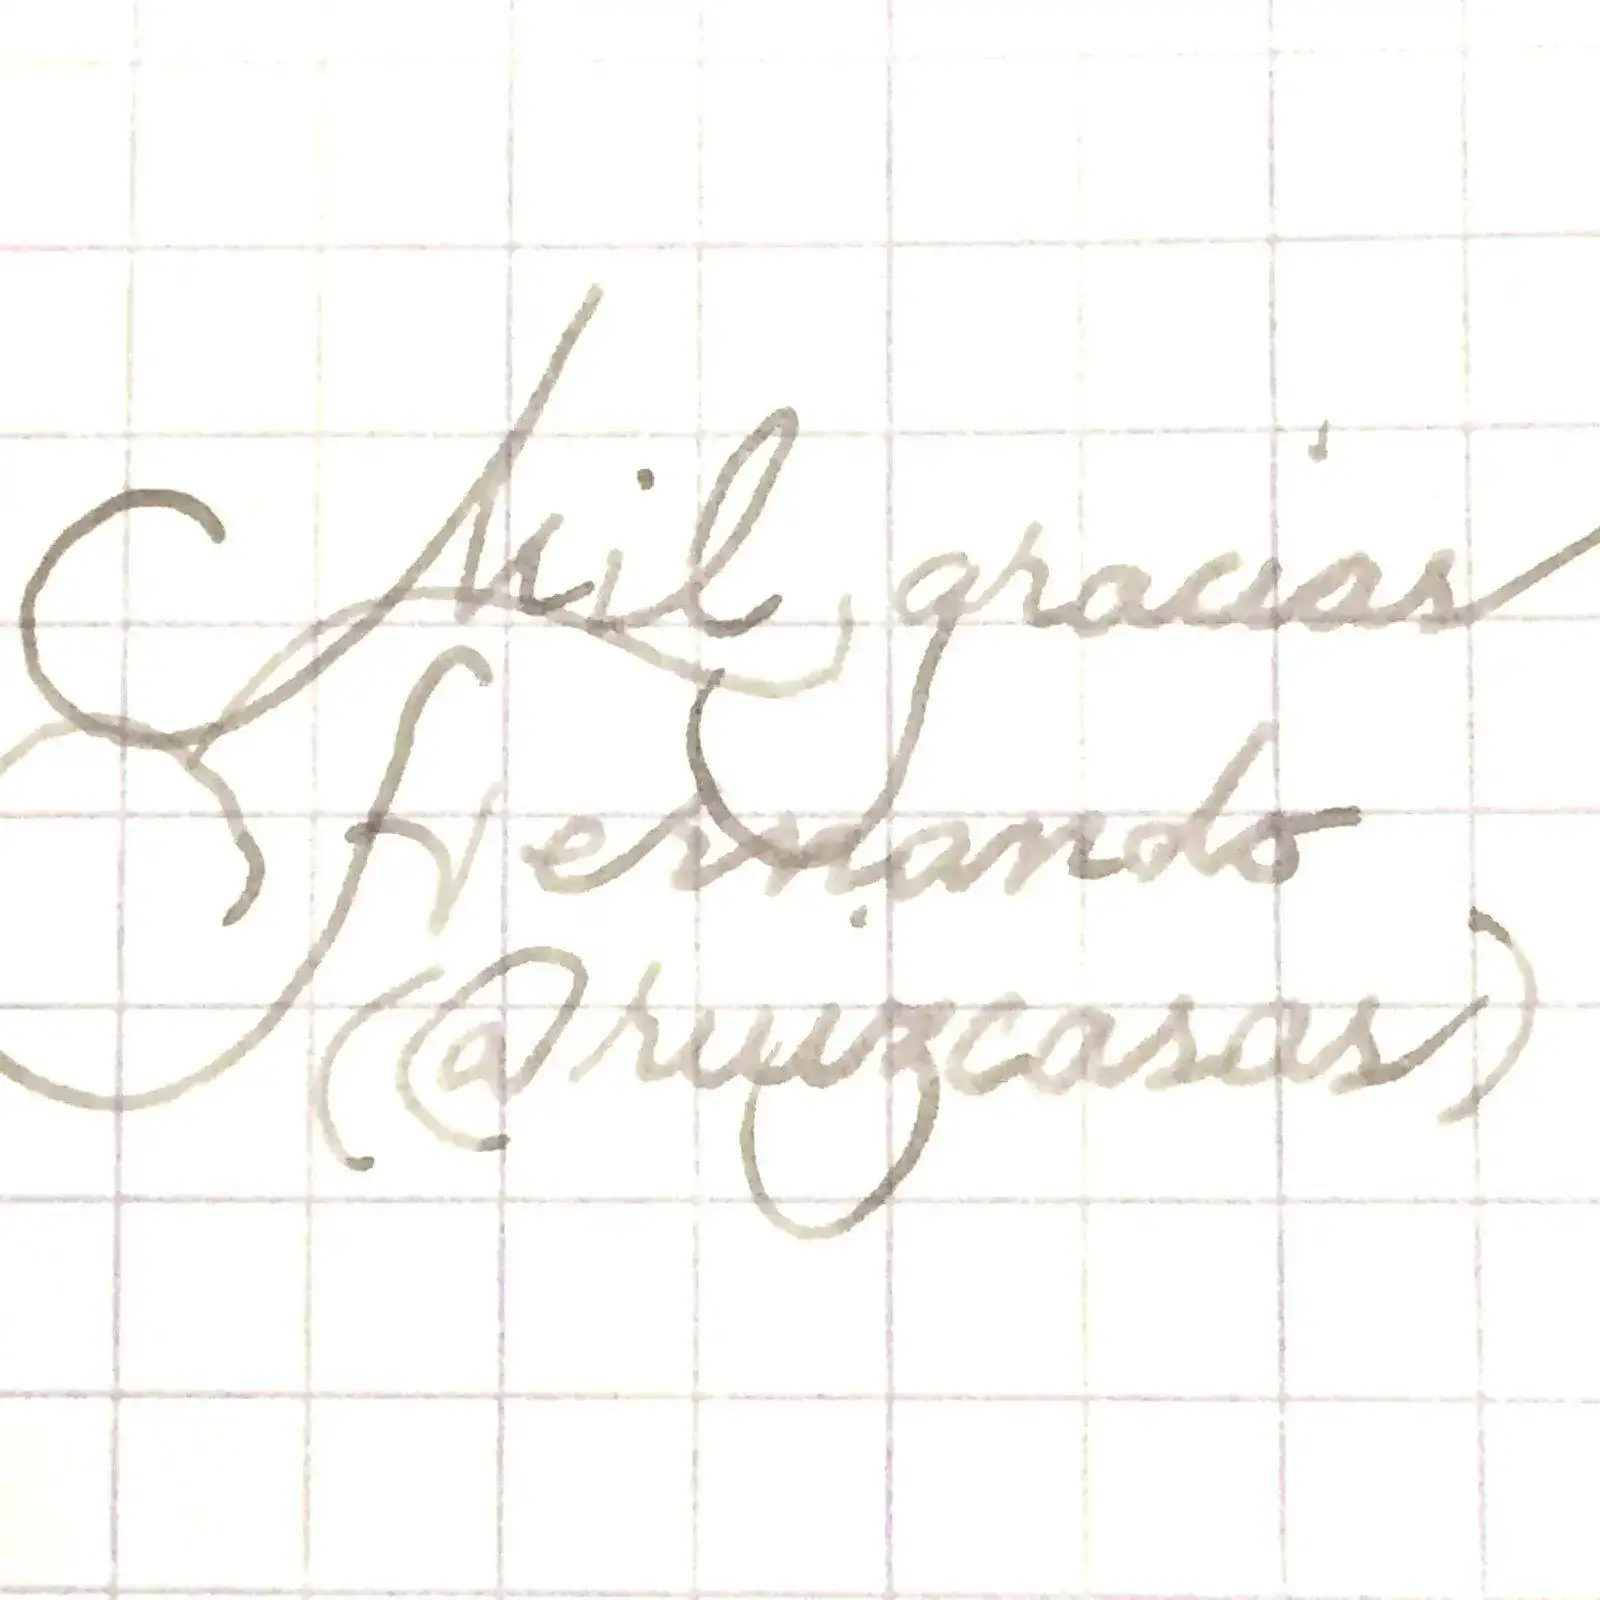 Mil gracias
Fernando
(@ruizcasas)